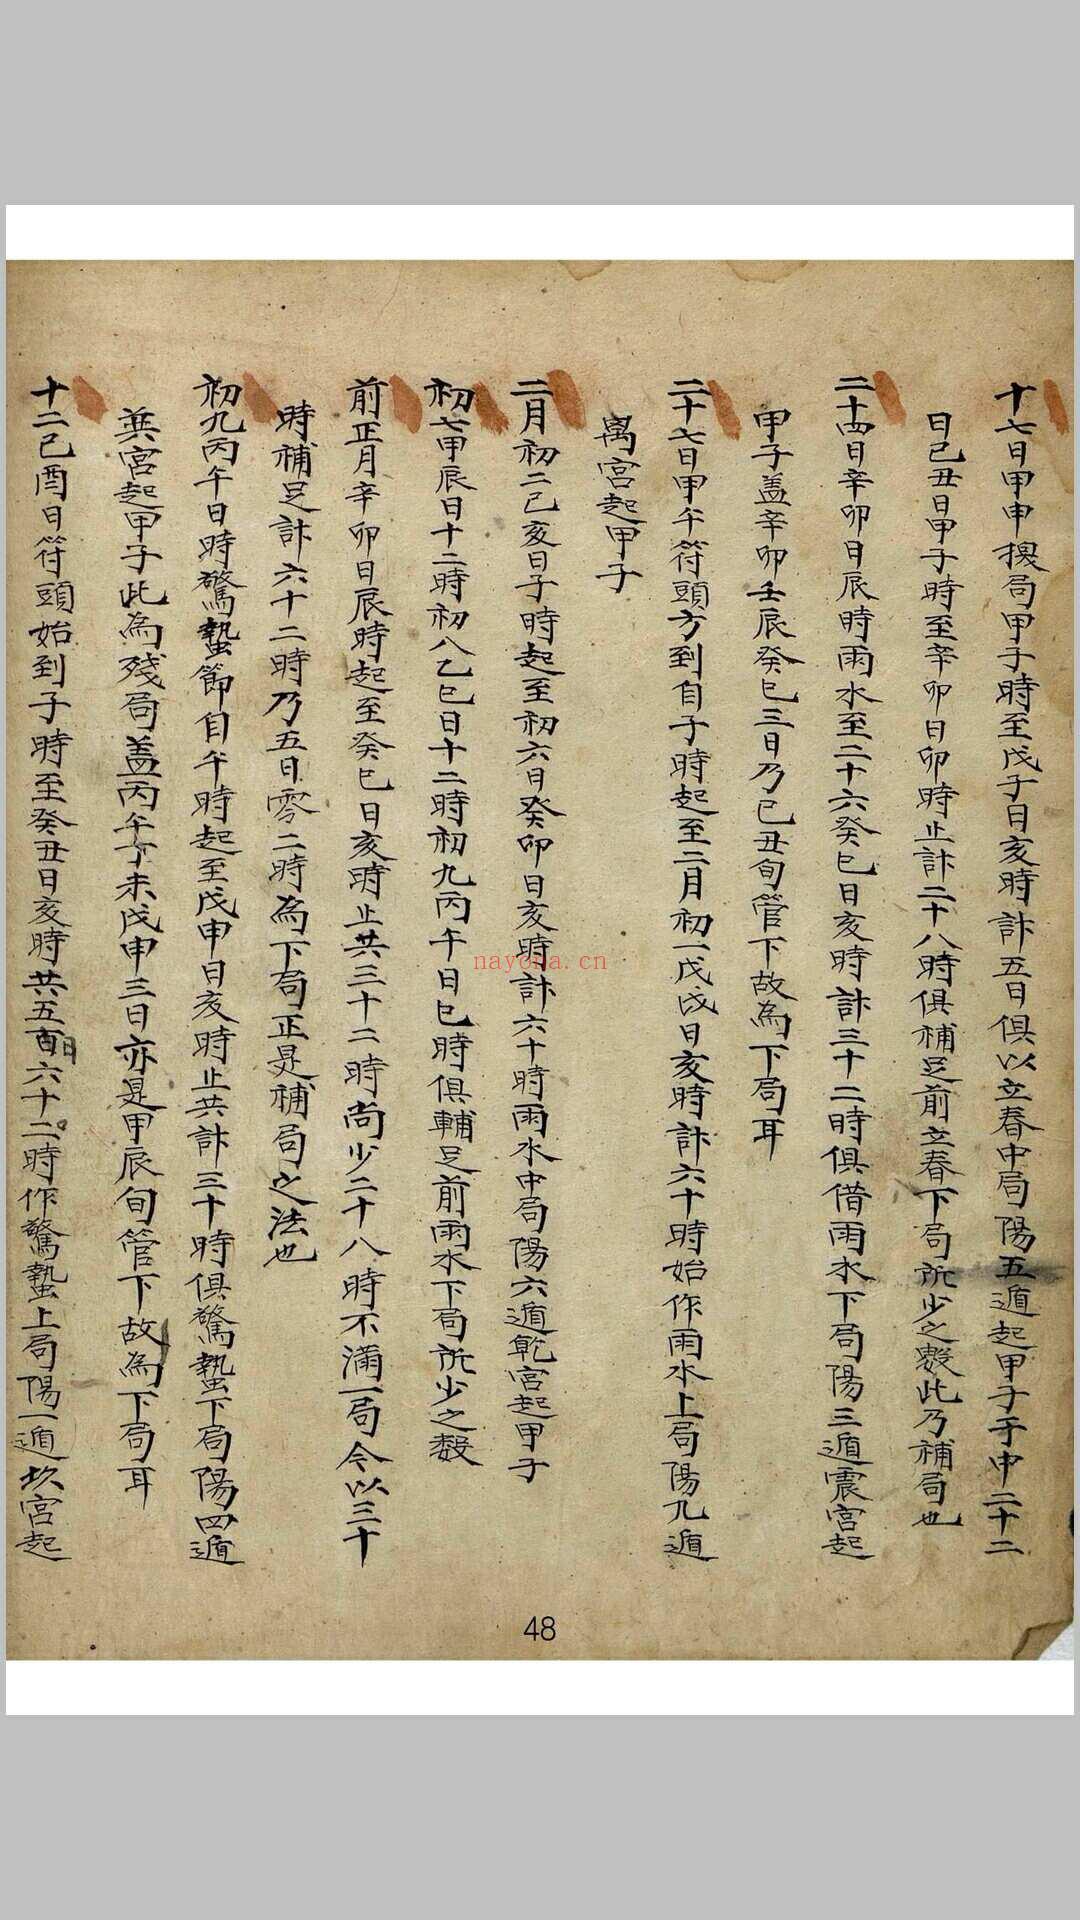 十七日甲申換局甲子時至戊子日亥時計五日俱以立春中局陽五遁起甲子于中二十二
日己丑日甲子時至辛卯日卯時止計二十八時俱補足前立春下局所少之數此乃補局也
二十四日辛卯日辰時雨水至二十六癸巳日亥時計三十二時俱借雨水下局陽三遁震宮起
甲子盖辛卯壬辰癸巳三日乃己丑旬管下故為下局耳
二十七日甲午符頭方到自子時起至二月初一戊戌日亥時計六十時始作雨水上局陽九遁
离宮起甲子
二月初二己亥日子時起至初六日癸卯日亥時計六十時雨水中局陽六遁乾宮起甲子
初七甲辰日十二時初八乙巳日十二時初九丙午日巳時俱輔足前雨水下局所少之數
前正月辛卯日辰時起至癸巳日亥時止共三十二時尚少二十八時不滿一局今以三十
時補足計六十二時乃五日零二時為下局正是補局之法也
初九丙午日時驚蟄節自午時起至戊申日亥時止共計三十時俱驚蟄下局陽四遁
巽宮起甲子此為殘局盖丙午丁未戊申三日亦是甲辰旬管下故為下局耳
十二己酉日符頭始到子時至癸丑日亥時共五日六十二時作驚蟄上局陽一遁坎宮起
nayona.cn
48